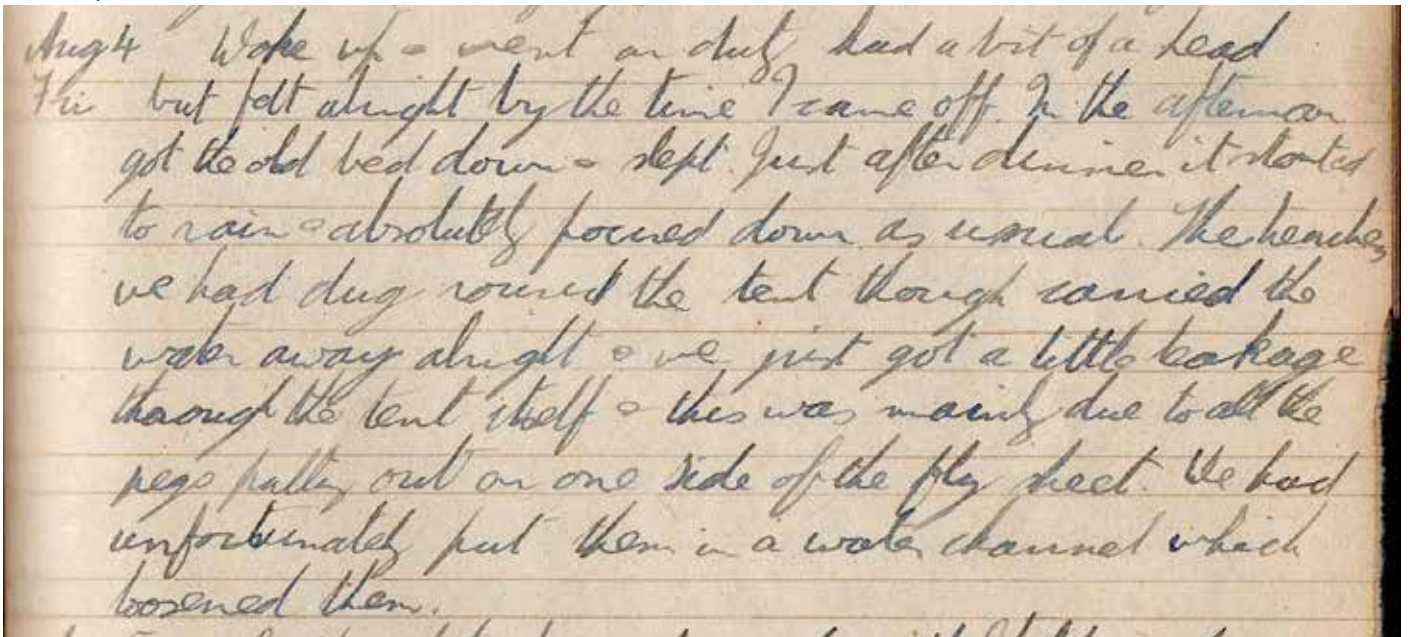 Aug 4 Woke up & went on duty had a bit of a head
Fri but felt alright by the time I came off. In the afternoon
got the old bed down & slept. Just after dinner it started
to rain & absolutely poured down as usual. The trenches
we had dug round the tent though carried the
water away alright & we just got a little leakage
through the tent itself & this was mainly due to all the
pegs pulling out on one side of the fly sheet. We had
unfortunately put them in a water channel which
loosened them.